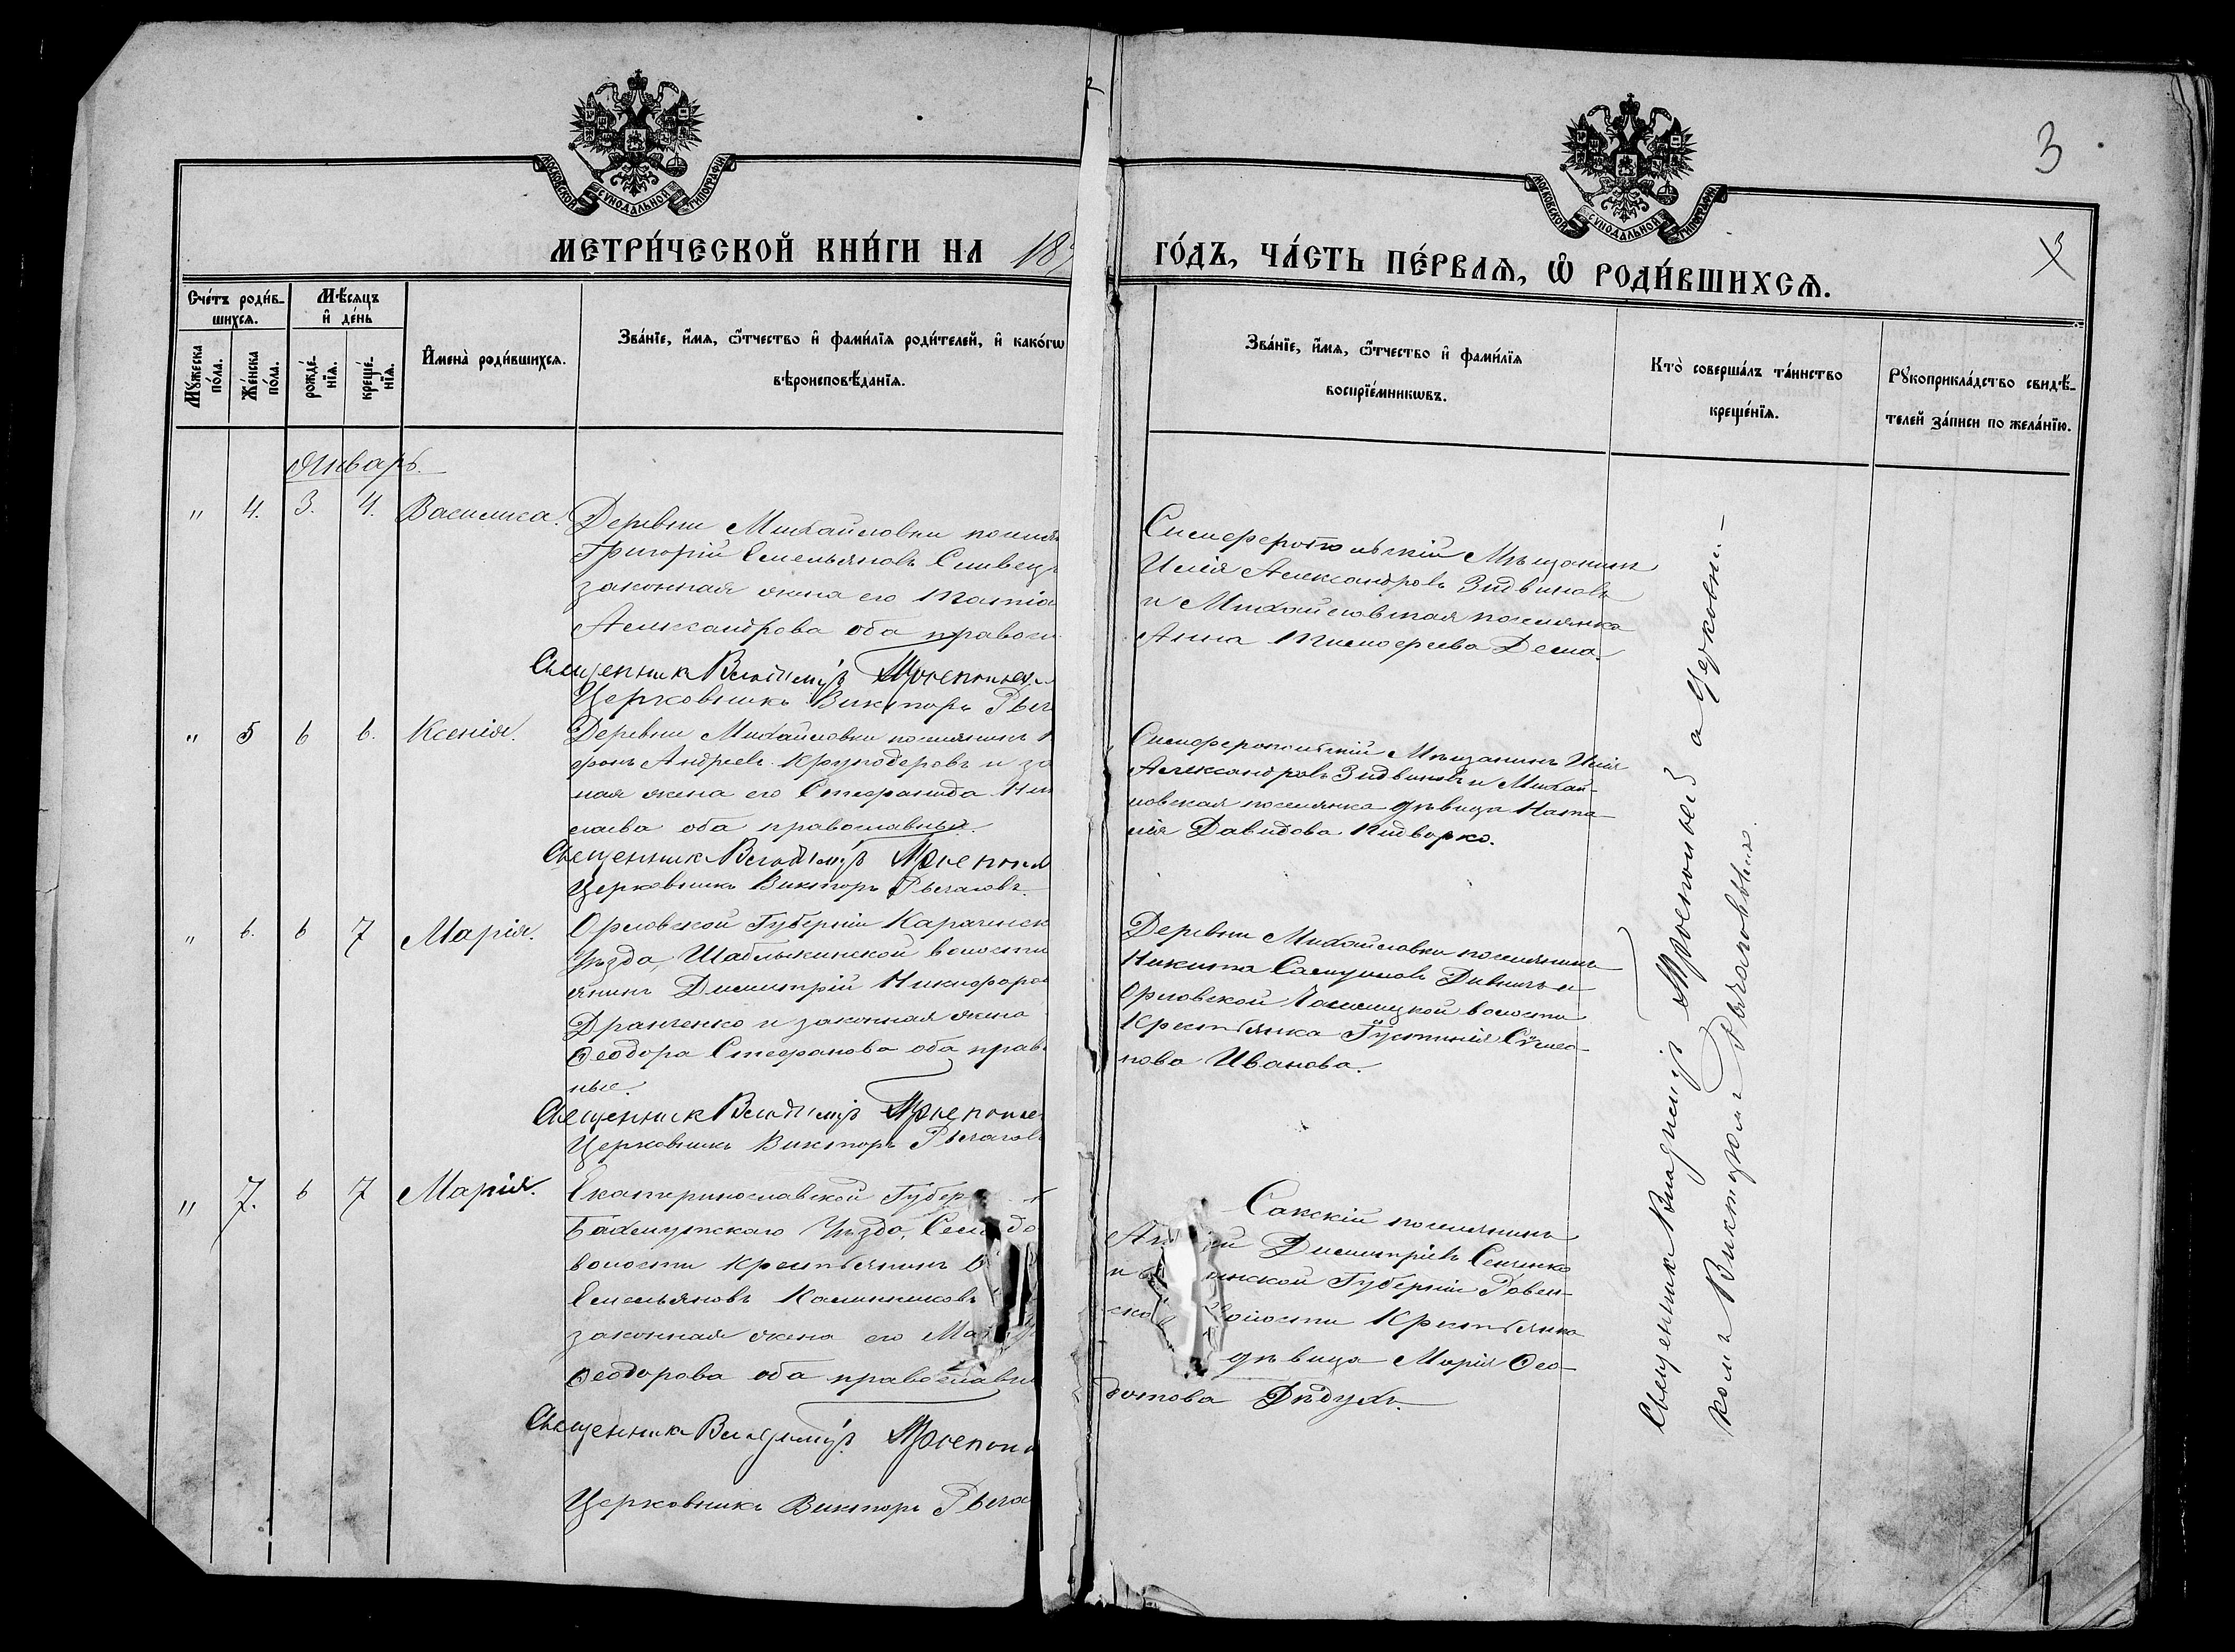 3
3
МОСКОВСКОЙ СѴНОДАЛЬНОЙ ТИПОГРАФІИ
МОСКОВСКОЙ СѴНОДАЛЬНОЙ ТИПОГРАФІИ
МЕТРИ́ЧЕСКОЙ КНИ́ГИ НА 187
ГО́ДЪ, ЧА́СТЬ ПЕ́РВАѦ, Ѡ҆ РОДИ́ВШИХСѦ.
Сче́тъ роди́в-
шихсѧ.
Мѣ́сѧцъ
и҆ де́нь
Мꙋ́жеска по́ла.
Же́нска по́ла.
рожде́-
нїѧ.
креще́-
нїѧ.
И҆мена̀ роди́вшихсѧ.
Зва́нїе, и҆́мѧ, ѻ҆́тчество и҆ фами́лїѧ роди́телей, и҆ како́гѡ
вѣроисповѣ́данїѧ.
Зва́нїе, и҆́мѧ, ѻ҆́тчество и҆ фами́лїѧ
воспрїе́мникѡвъ.
Кто̀ соверша́лъ та́инство
креще́нїѧ.
Рꙋкоприкла́дство свидѣ́-
телей за́писи по жела́нїю.
Январь.
" 4. 3. 4. Василиса.
Деревни Михайловки поселя
Григорій Емельяновъ
законная жена его
Александрова оба правосл
Священникъ Владиміръ
Церковникъ Викторъ Рыч
Симферопольскій Мѣщанинъ
Илія Александровъ Зидвиновъ
и Михайловская поселянка
Анна Тимофеева Дема.
" 5 6 6. Ксенія.
Деревни Михайловки поселянинъ
фонъ Андреевъ Круподеровъ и за
ная жена его Стефанида Ни
лаева оба православные.
Священникъ Владиміръ
Церковникъ Викторъ Рычаговъ
Симферопольскій Мѣщанинъ Илія
Александровъ Зидвиновъ и Михай-
ловская поселянка дѣвица Ната-
лія Давидова Кидворко.
" 6. 6 7 Марія.
Орловской Губерніи Карачевск
Уѣзда, Шаблыкинской волости
янинъ Димитрій Никифоров
Дранченко и законная жена
Ѳеодора Стефанова оба прав
ные.
Священникъ Владиміръ
Церковникъ Викторъ Рычаговъ
Деревни Михайловки поселянинъ
Никита Самуиловъ и
Орловской волости
Крестьянка Іустинія
нова Иванова.
" 7. 6 7 Марія.
Екатеринославской Губер
Бахмутскаго Уѣзда,
волости Крестьянинъ
Емельяновъ Калинниковъ
законная жена его
Ѳеодорова оба православн
Священникъ Владиміръ
Церковникъ Викторъ Рыча
Сакскій поселянинъ
Димитріевъ Сенченко
инской Губерніи Ровен-
ской волости Крестьянка
дѣвица Марія Ѳео-
дотова Дѣдухъ.
Священникъ Владиміръ а Церковни-
комъ Викторомъ Рычаговымъ.